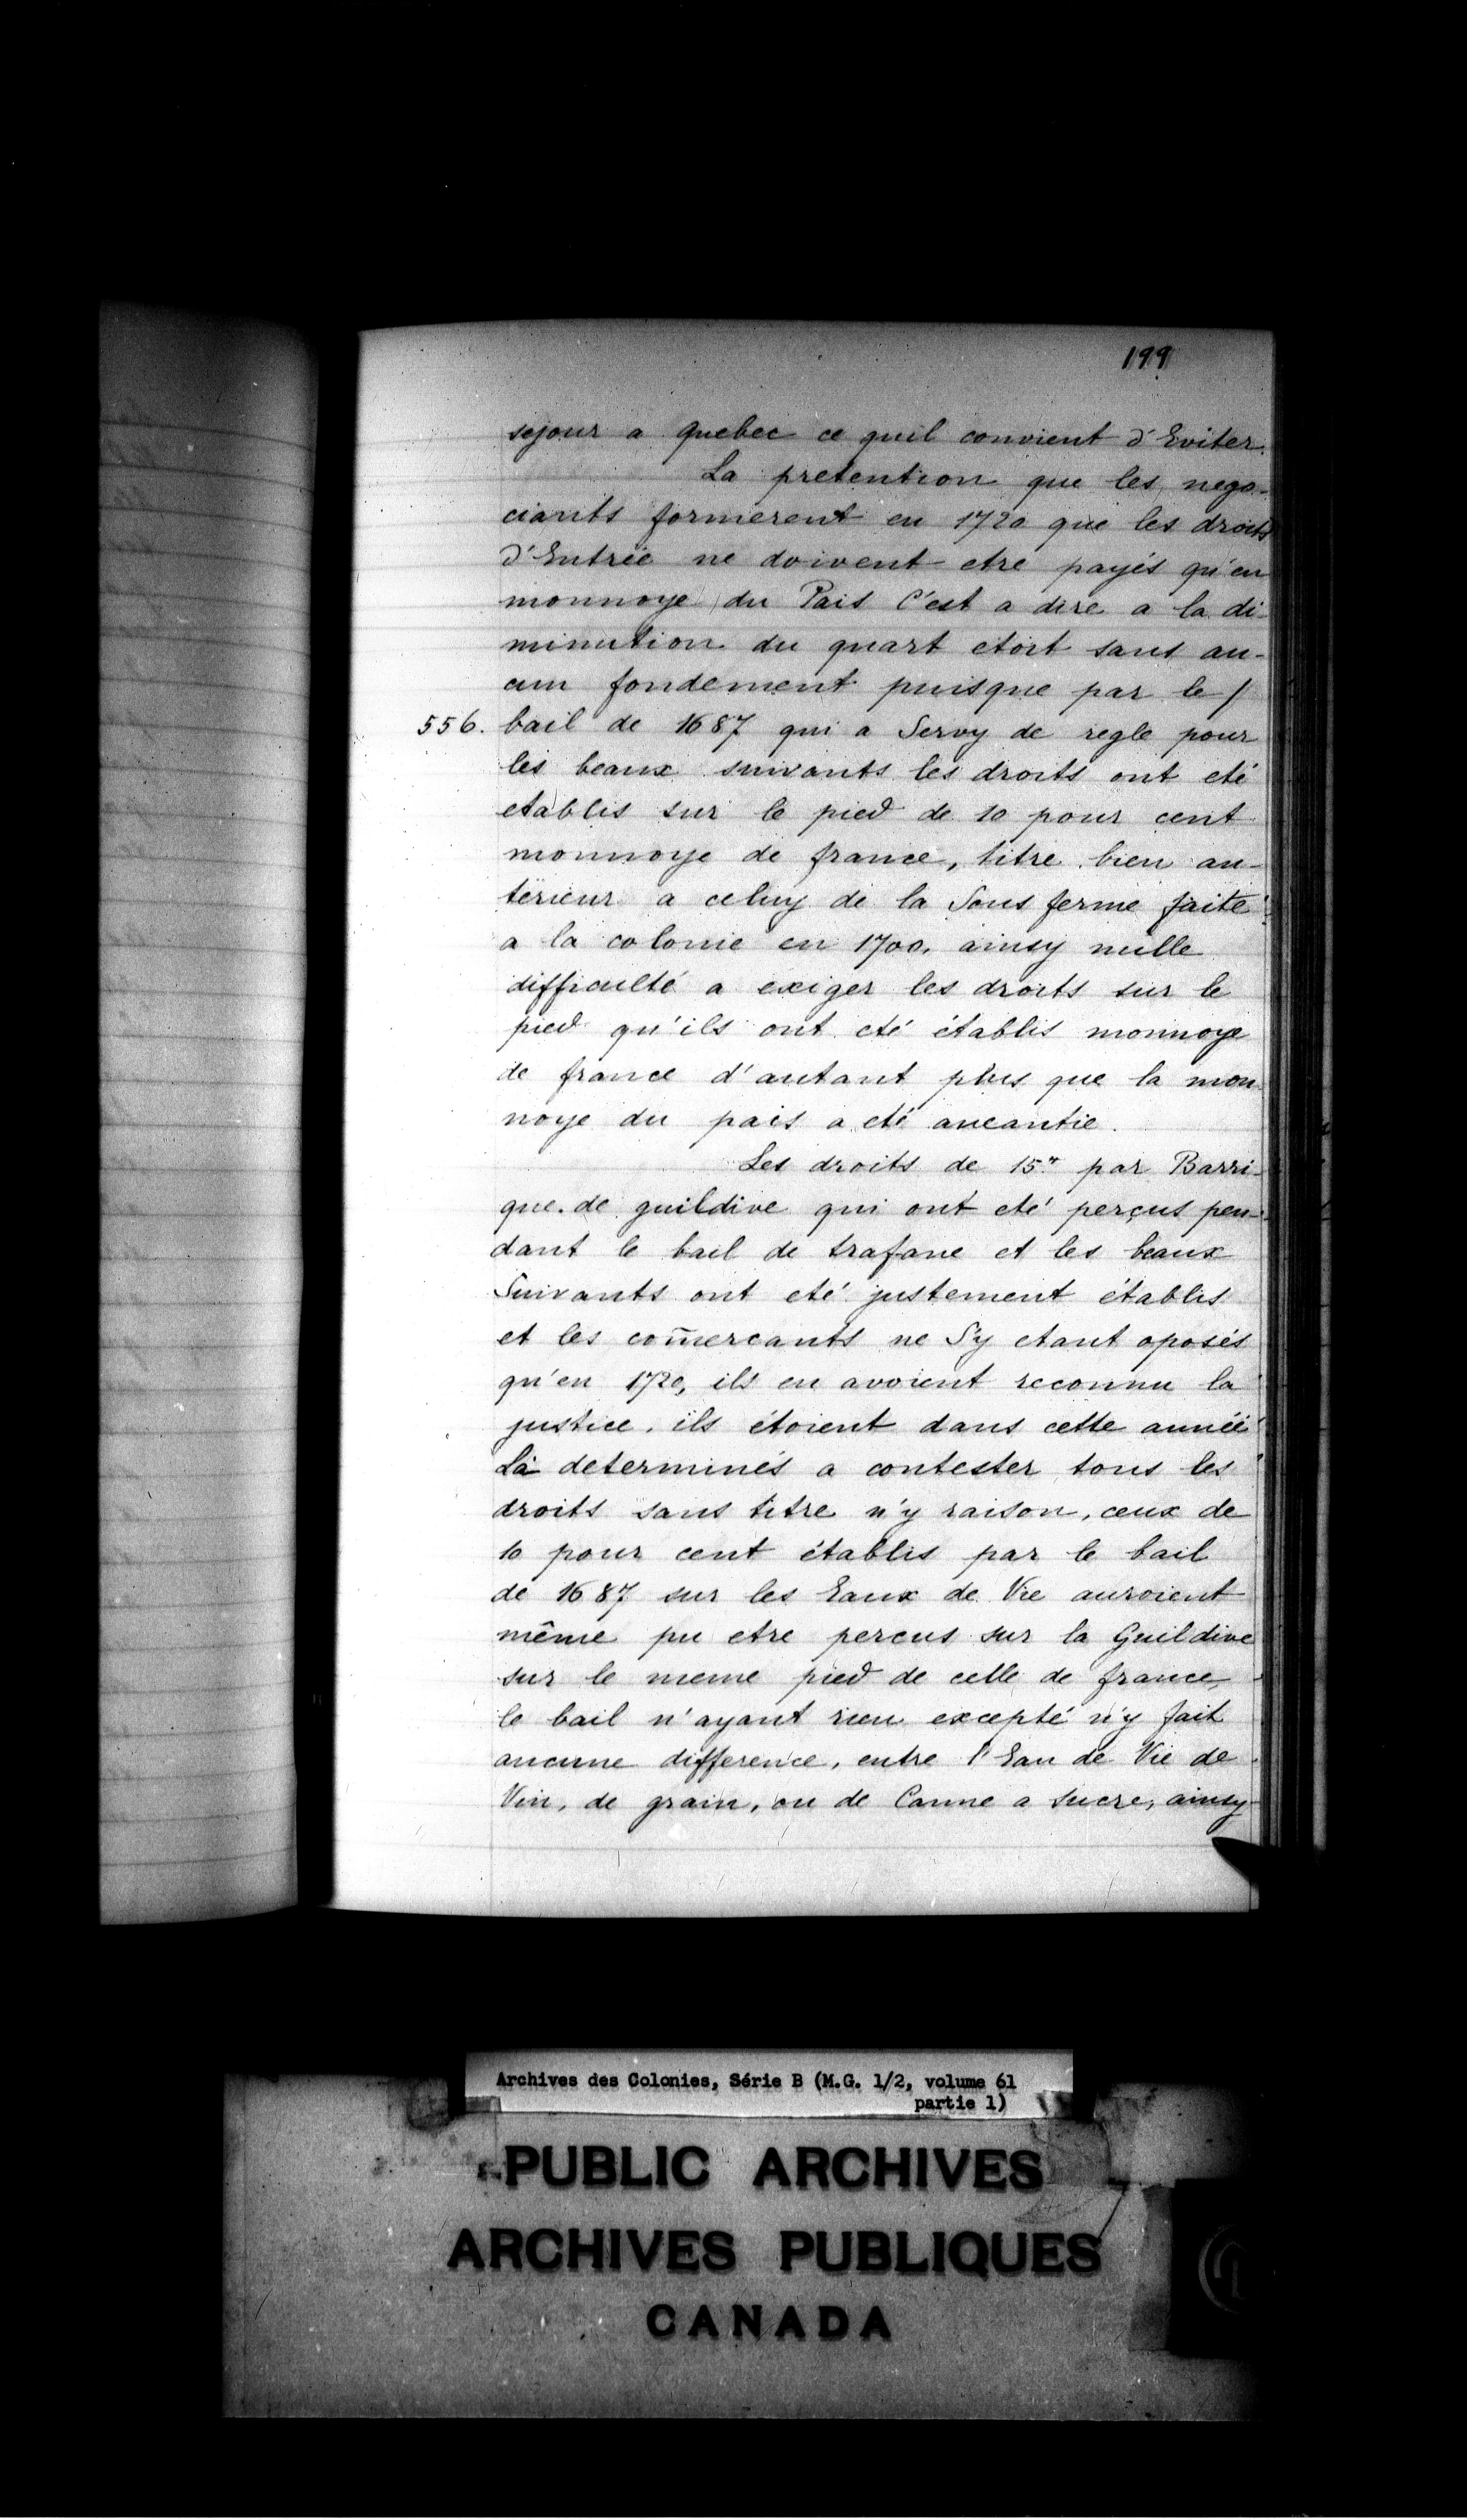 199
sejour a quebec ce quil convient d'Eviter.
La pretention que les nego-
ciants formerent en 1720 que les droits
d'Entrée ne doivent etre payés qu'en
monnoye du Pais C'est a dire a la di-
minution du quart etoit sans au-
cun fondement puisque par le /
556. bail de 1687 qui a Servy de regle pour
les beaux suivants les droits ont eté
etablis sur le pied de 10 pour cent
monnoye de france, titre bien an-
térieur a celuy de la Sous ferme faite
a la colonie en 1700. ainsy nulle
difficulté a exiger les droits sur le
pied qu'ils ont eté établis monnoye
de france d'autant plus que la mon-
noye du pais a eté aneantie.
Les droits de 15ᵗᵗ par Barri-
que de guildive qui ont eté perçus pen-
dant le bail de trafane et les beaux
Suivants ont eté justement établis
et les com̃ercants ne S'y etant oposés
qu'en 1720, ils en avoient reconnu la
justice. ils étoient dans cette année
Là determinés a contester tous les
droits sans titre n'y raison, ceux de
10 pour cent établis par le bail
de 1687 sur les Eaux de Vie auroient
même pu etre percus sur la Guildive
sur le meme pied de celle de france,
le bail n'ayant rien excepté n'y fait
aucune difference, entre l'Eau de Vie de
Vin, de grain, ou de Canne a sucre, ainsy
Archives des Colonies, Série B (M.G. 1/2, volume 61
partie 1)
PUBLIC ARCHIVES
ARCHIVES PUBLIQUES
CANADA